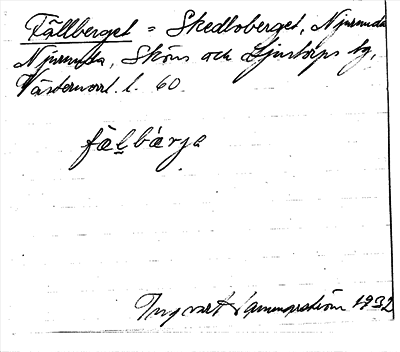 Fällberget = Skedloberget, Njurunda
Njurunda, Sköns och Ljustorps tg,
Västernorrl. l. 60.
fälbärja
Ingvart 1932